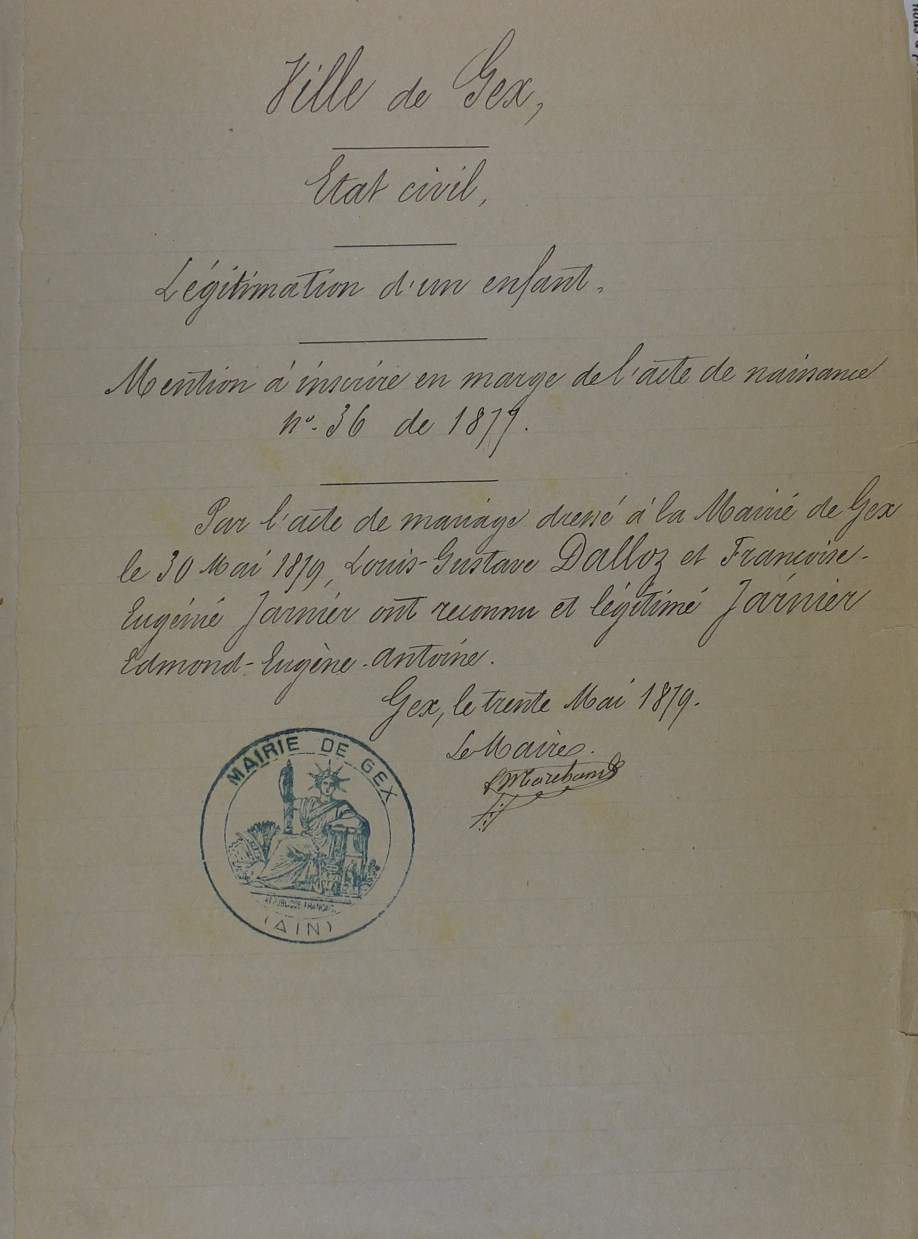 Ville de Gex,
Etat civil,
Légitimation d'un enfant.
Mention à inscrire en marge de l'acte de naissance
nº. 36 de 1877.
Par l'acte de mariage dressé à la Mairie de Gex
le 30 Mai 1879, Louis-Gustave Dalloz et Françoise-
Eugénie Jarnier ont reconnu et légitimé Jarnier
Edmond-Eugène-Antoine.
Gex, le trente Mai 1879.
Le Maire.
Marchand
MAIRIE DE GEX
REPUBLIQUE FRANÇAISE
(AIN)